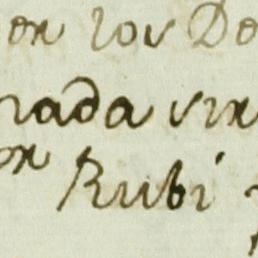 en los De
nada vir
on Rubi